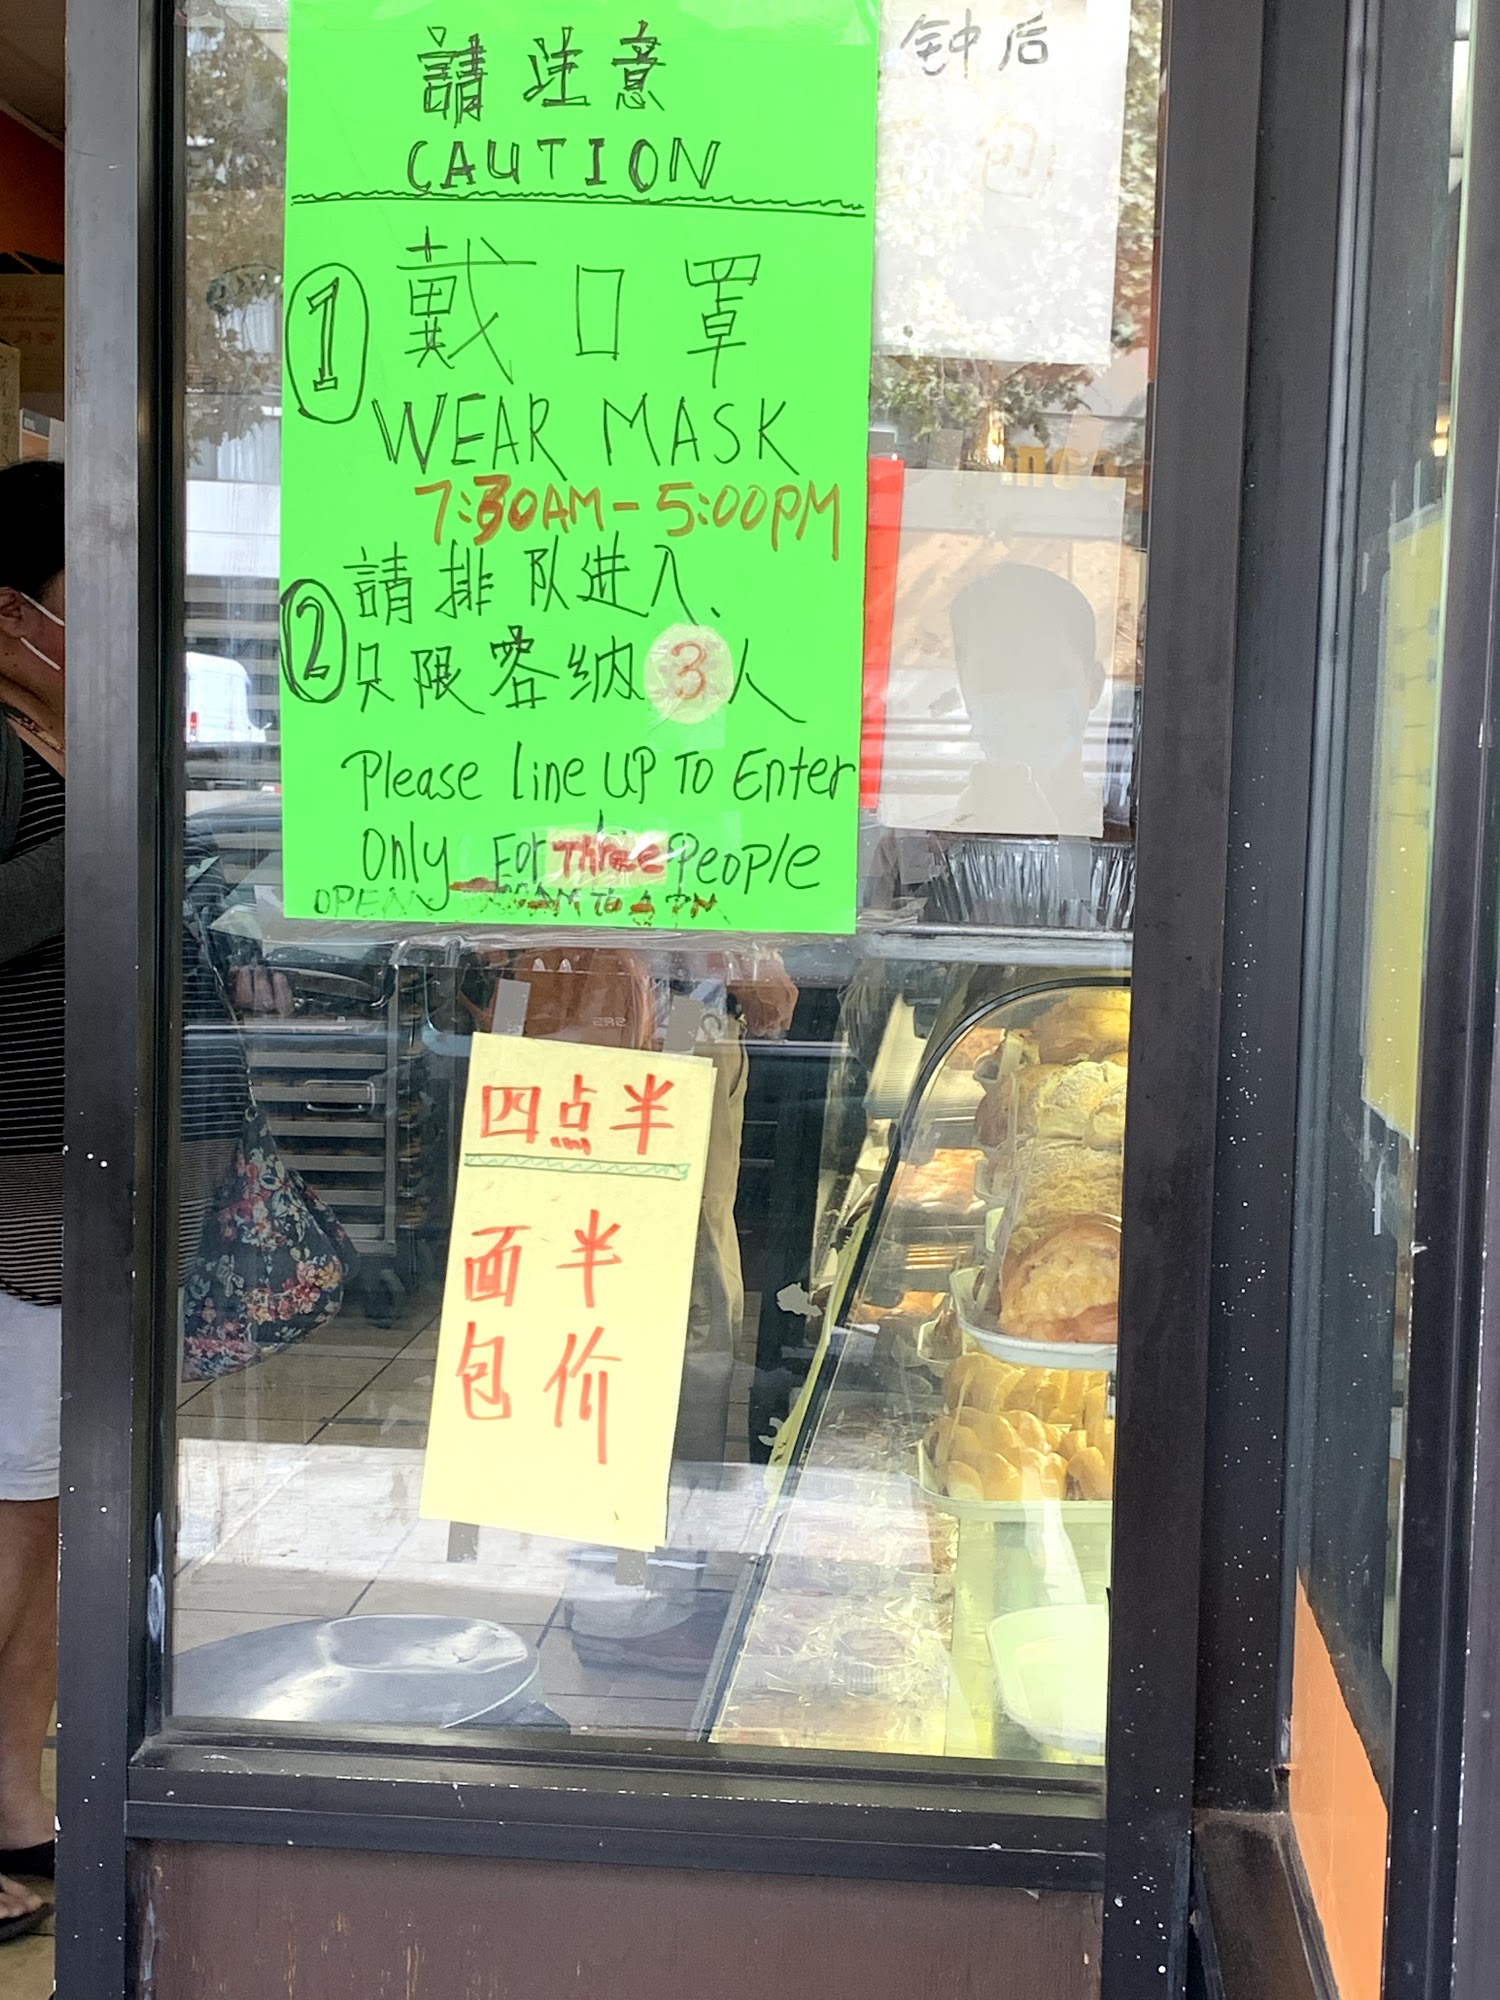 請注意
CAUTION
① 戴口罩
WEAR MASK
7:30AM-5:00PM
② 請排队进入、
只限容纳3人
Please line UP To Enter
Only For Three People
OPEN AM To PM
钟后
包
四点半
面包
半价